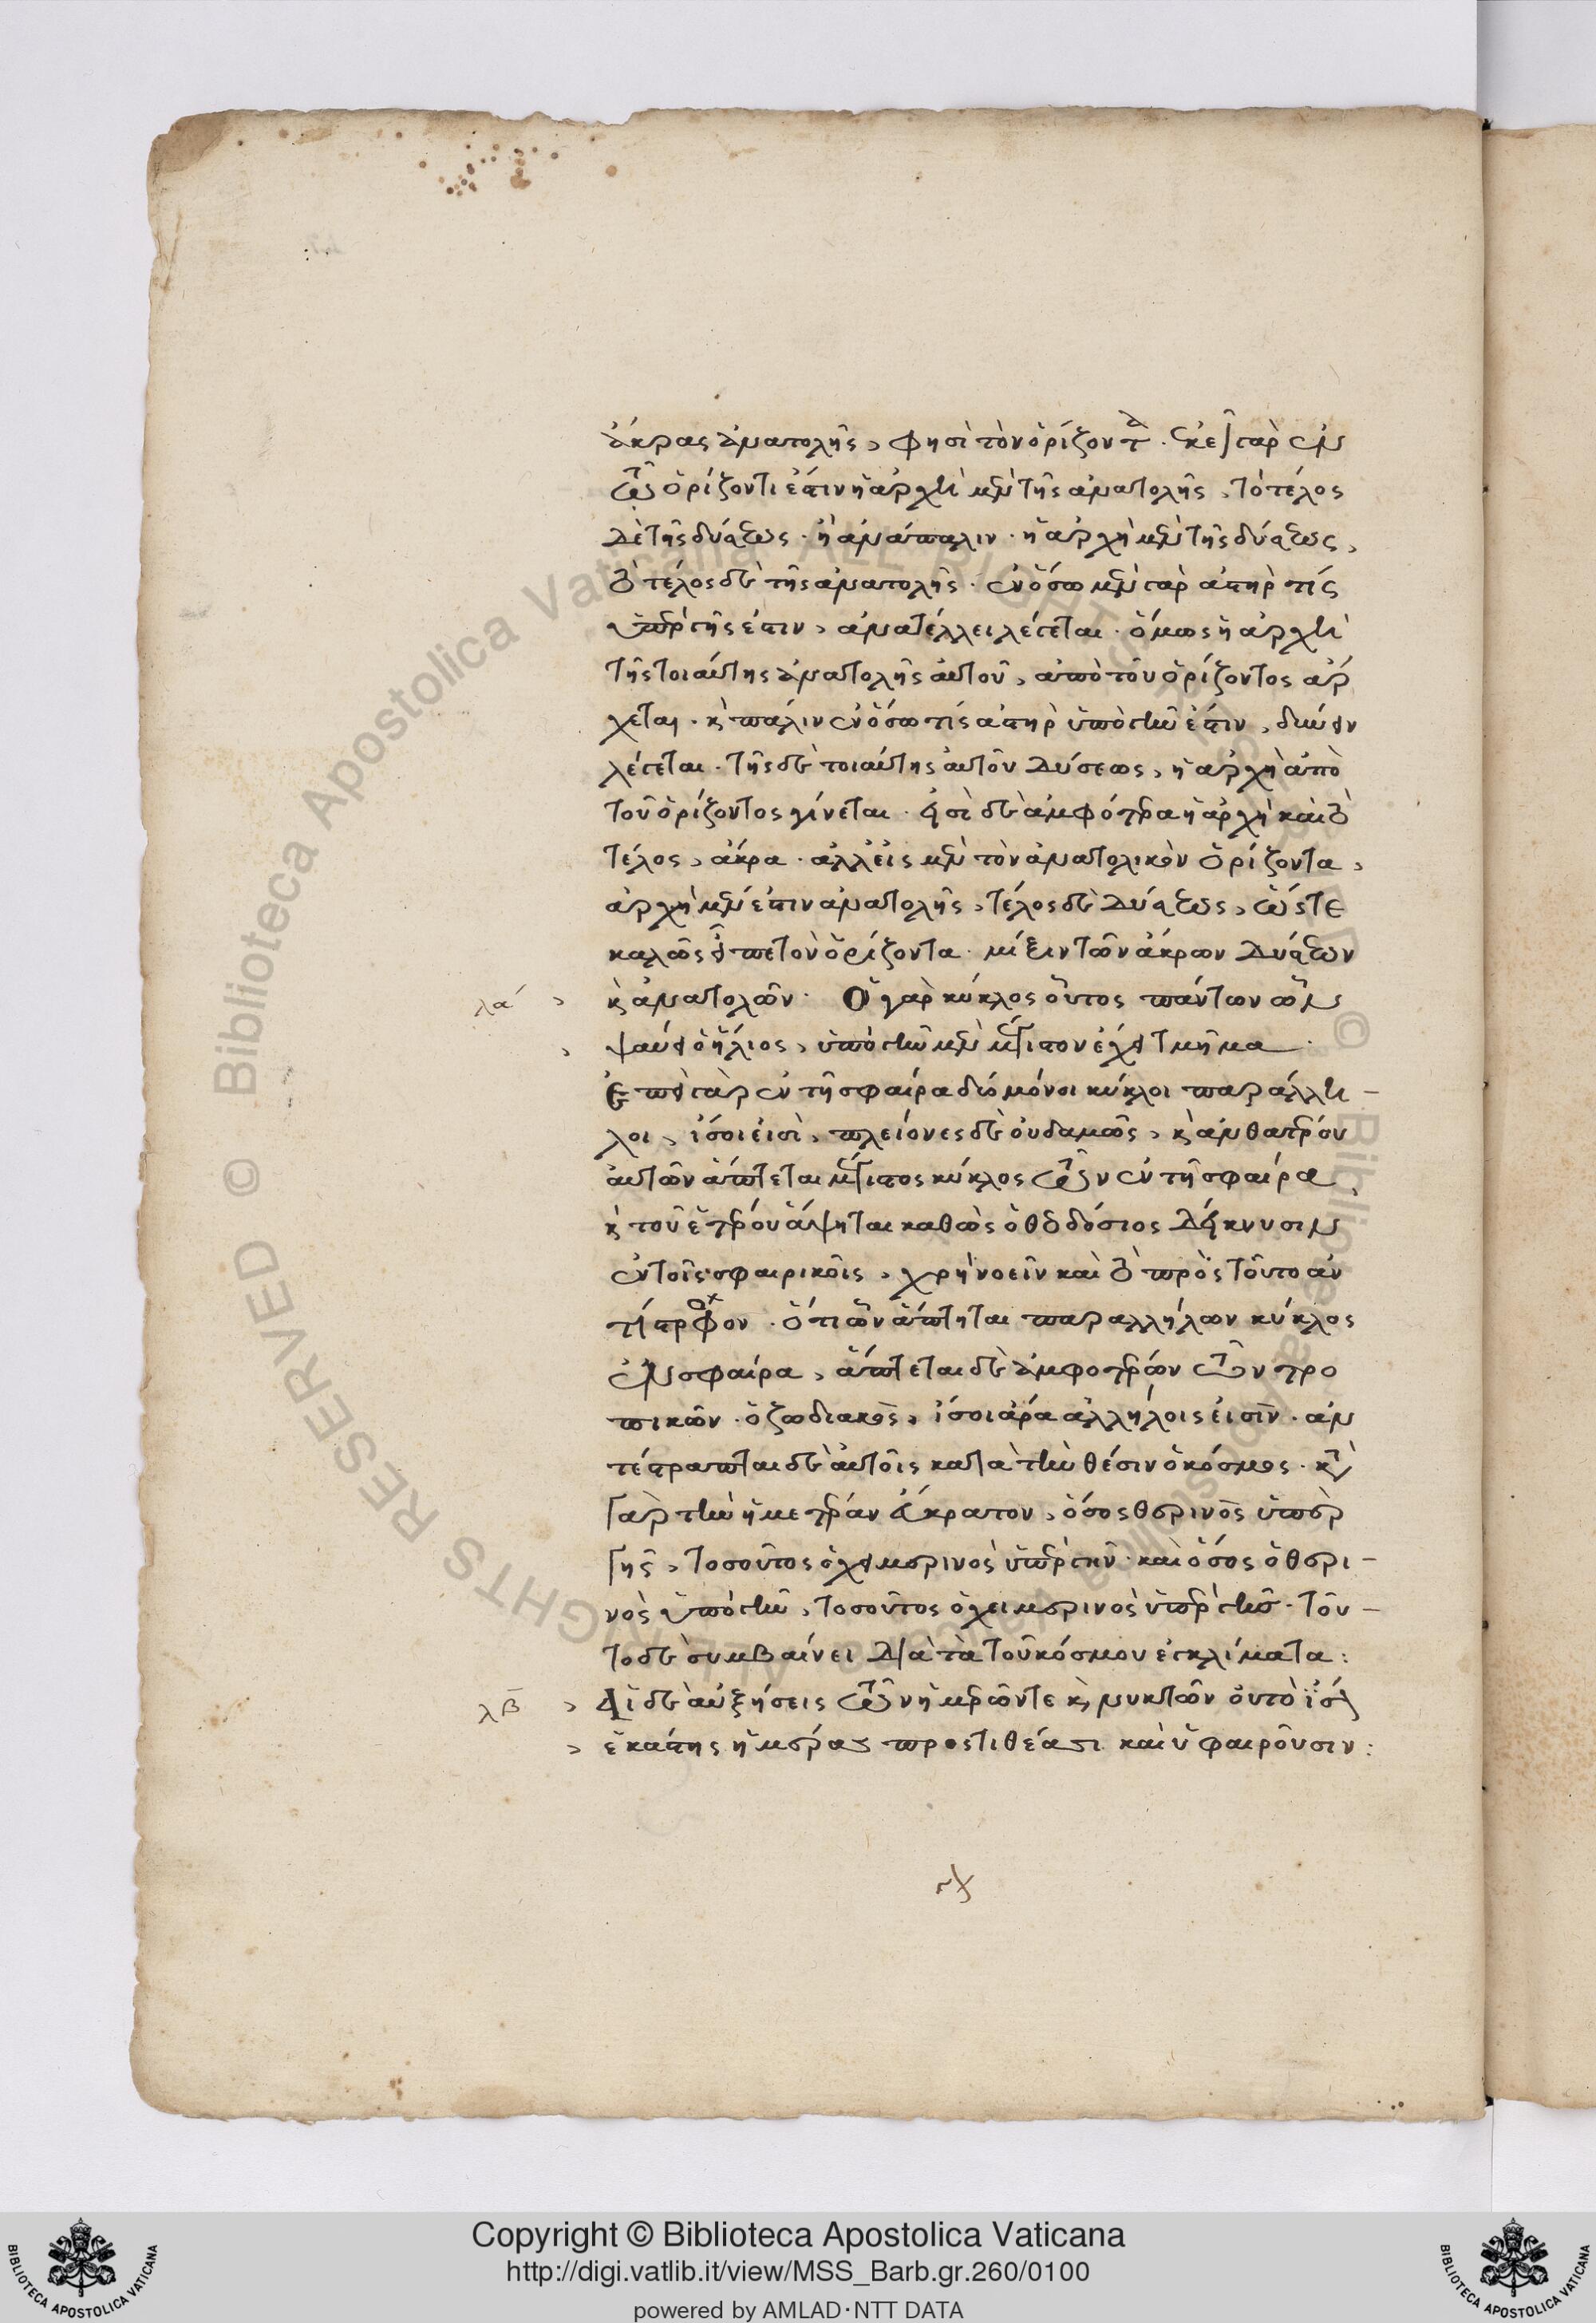 ἄκρας ἀνατολῆς, φησὶ τὸν ὁρίζοντα. ἐκεῖ γὰρ ἐν
τῷ ὁρίζοντι ἐστὶν ἡ ἀρχὴ μὲν τῆς ἀνατολῆς, τὸ τέλος
δὲ τῆς δύσεως. ἢ ἀνάπαλιν. ἡ ἀρχὴ μὲν τῆς δύσεως,
τὸ τέλος δὲ τῆς ἀνατολῆς. ἐν ὅσω μὲν γὰρ ἀστήρ τίς
ὑπὲρ γῆς ἐστιν, ἀνατέλλει λέγεται. ὅμως ἡ ἀρχὴ
τῆς τοιαύτης ἀνατολῆς αὐτοῦ, ἀπὸ τοῦ ὁρίζοντος ἄρ
χεται. καὶ πάλιν ἐν ὅσω τίς ἀστὴρ ὑπὸ γῆν ἐστιν, δύνειν
λέγεται. τῆς δὲ τοιαύτης αὐτοῦ δύσεως, ἡ ἀρχὴ ἀπὸ
τοῦ ὁρίζοντος γίνεται. εἰσὶ δὲ ἀμφότερα ἡ ἀρχὴ καὶ τὸ
τέλος, ἄκρα. ἀλλ' εἰς μὲν τὸν ἀνατολικὸν ὁρίζοντα,
ἀρχὴ μέν ἐστιν ἀνατολῆς, τέλος δὲ δύσεως, ὥστε
καλῶς εἶπε τὸν ὁρίζοντα μίξιν τῶν ἄκρων δύσεων
λα´ , καὶ ἀνατολῶν. Ὁ γὰρ κύκλος οὗτος πάντων ὧν
, ψαύει ὁ ἥλιος, ὑπὸ γῆν μὲν μέγιστον ἔχει τμῆμα.
Ἐπεὶ γὰρ ἐν τῆ σφαίρα δύο μόνοι κύκλοι παράλλη–
λοι, ἴσοι εἰσὶ, πλείονες δὲ οὐδαμῶς, καὶ ἂν θατέρου
αὐτῶν ἅπτεται μέγιστος κύκλος τῶν ἐν τῆ σφαίρα,
καὶ τοῦ ἑτέρου ἅψηται καθὼς ὁ θεοδόσιος δείκνυσιν
ἐν τοῖς σφαιρικοῖς, χρὴ νοεῖν καὶ τὸ πρὸς τοῦτο ἀν
τίστροφον. ὅτι ὧν ἅπτηται παραλλήλων κύκλος
ἐν σφαίρα, ἅπτεται δὲ ἀμφοτέρων τῶν τρο
πικῶν ὁ ζωδιακὸς, ἴσοι ἄρα ἀλλήλοις εἰσὶν. ἀν
τέστραπται δὲ αὐτοῖς κατὰ τὴν θέσιν ὁ κόσμος. κατὰ
γὰρ τὴν ἡμετέραν εὔκρατον, ὅσος θερινὸς ὑπὲρ
γῆς, τοσοῦτος ὁ χειμερινὸς ὑπὲρ γῆν. καὶ ὅσος ὁ θερι–
νὸς ὑπὸ γῆν, τοσοῦτος ὁ χειμερινὸς ὑπὲρ γῆν. τοῦ–
το δὲ συμβαίνει διὰ τὰ τοῦ κόσμου ἐγκλίματα:
λβ , Αἱ δὲ αὐξήσεις τῶν ἡμερῶν τε καὶ νυκτῶν οὐ τὸ ἴσον
, ἑκάστης ἡμέρας προστιθέασι καὶ ὑφαιροῦσιν:
Copyright © Biblioteca Apostolica Vaticana
http://digi.vatlib.it/view/MSS_Barb.gr.260/0100
powered by AMLAD·NTT DATA
© Biblioteca Apostolica Vaticana ALL RIGHTS RESERVED
BIBLIOTECA APOSTOLICA VATICANA
BIBLIOTECA APOSTOLICA VATICANA